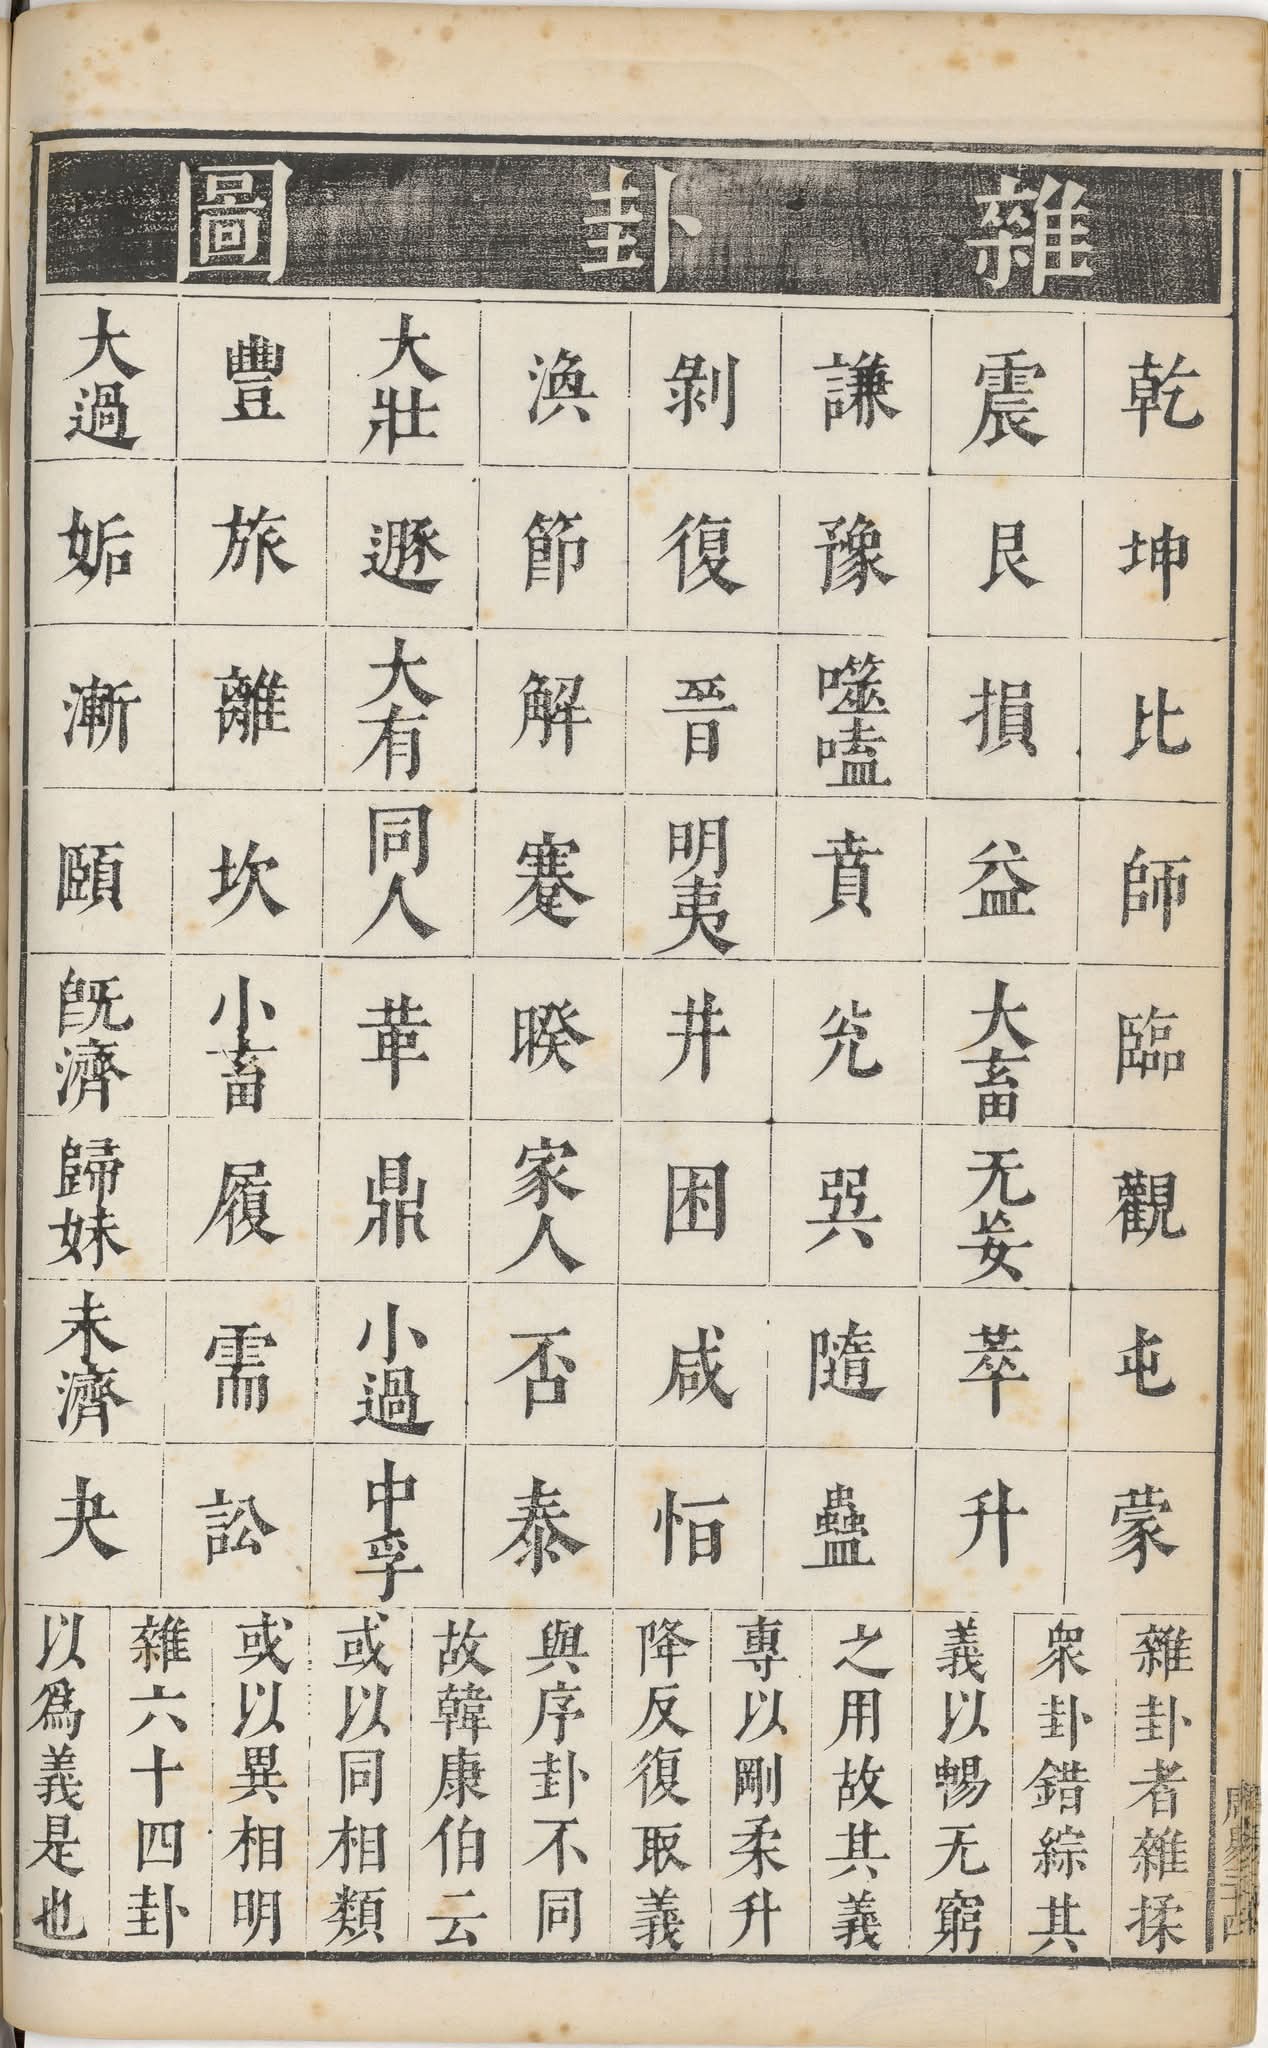 雜卦圖
乾
坤
比
師
臨
觀
屯
蒙
震
艮
損
益
大畜
无妄
萃
升
謙
豫
噬嗑
賁
兊
巽
隨
蠱
剝
復
晉
明夷
井
困
咸
恒
渙
節
解
蹇
睽
家人
否
泰
大壯
遯
大有
同人
革
鼎
小過
中孚
豐
旅
離
坎
小畜
履
需
訟
大過
姤
漸
頤
旣濟
歸妹
未濟
夬
雜卦者雜揉
衆卦錯綜其
義以暢无窮
之用故其義
專以剛柔升
降反復取義
與序卦不同
故韓康伯云
或以同相類
或以異相明
雜六十四卦
以爲義是也